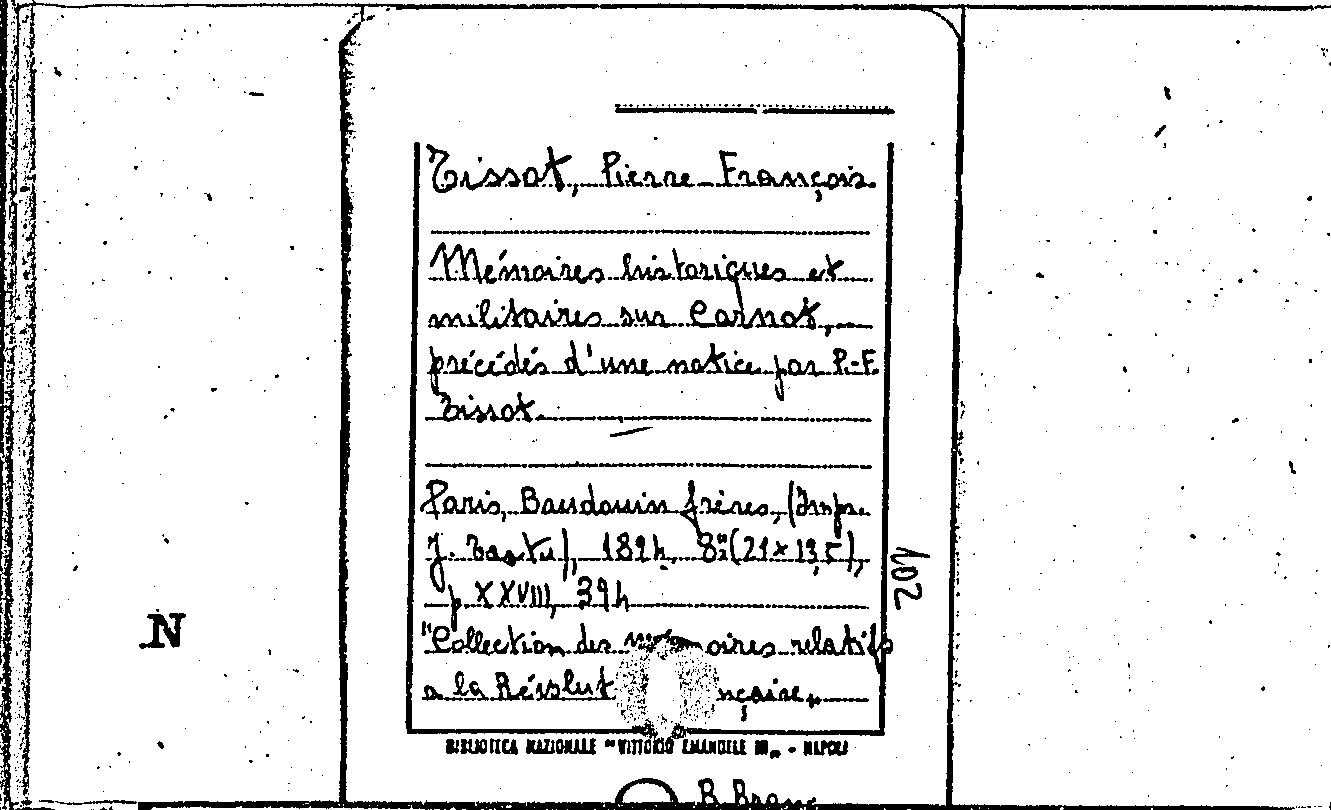 Tissot, Pierre François
Mémoires historiques et
militaires sur Carnot,
précédés d'une notice par P.-F.
Tissot.
Paris, Baudouin frères, (Impr.
J. Tastu), 1824, 8°(21x13,5),
p. XXVIII, 394
102
N
"Collection des mémoires relatifs
a la Révolut nçaise"
BIBLIOTECA NAZIONALE "VITTORIO EMANUELE III" - NAPOLI
B. Branc